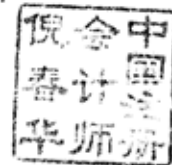 中国注册
会计师
倪春华